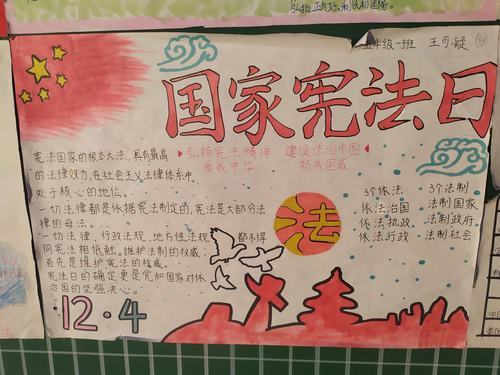 弘扬正能量,利民和国家。
五年级一班 王可凝
国家宪法日
宪法国家的根本大法,具有最高
的法律效力,在社会主义法律体系中
处于核心的地位。
一切法律都是依据宪法制定的,宪法是大部分法
律的母法。
一切法律,行政法规,地方性法规 都不得
同宪法相低触。维护法制的权威,
首先是维护宪法的权威。
宪法日的确定更是党和国家对依
法治国的坚强决心。
弘扬宪法精神 建设法治中国
爱我中华 扬我国威
法
3个依法
依法治国
依法执政
依法行政
3个法制
法制国家
法制政府
法制社会
12·4